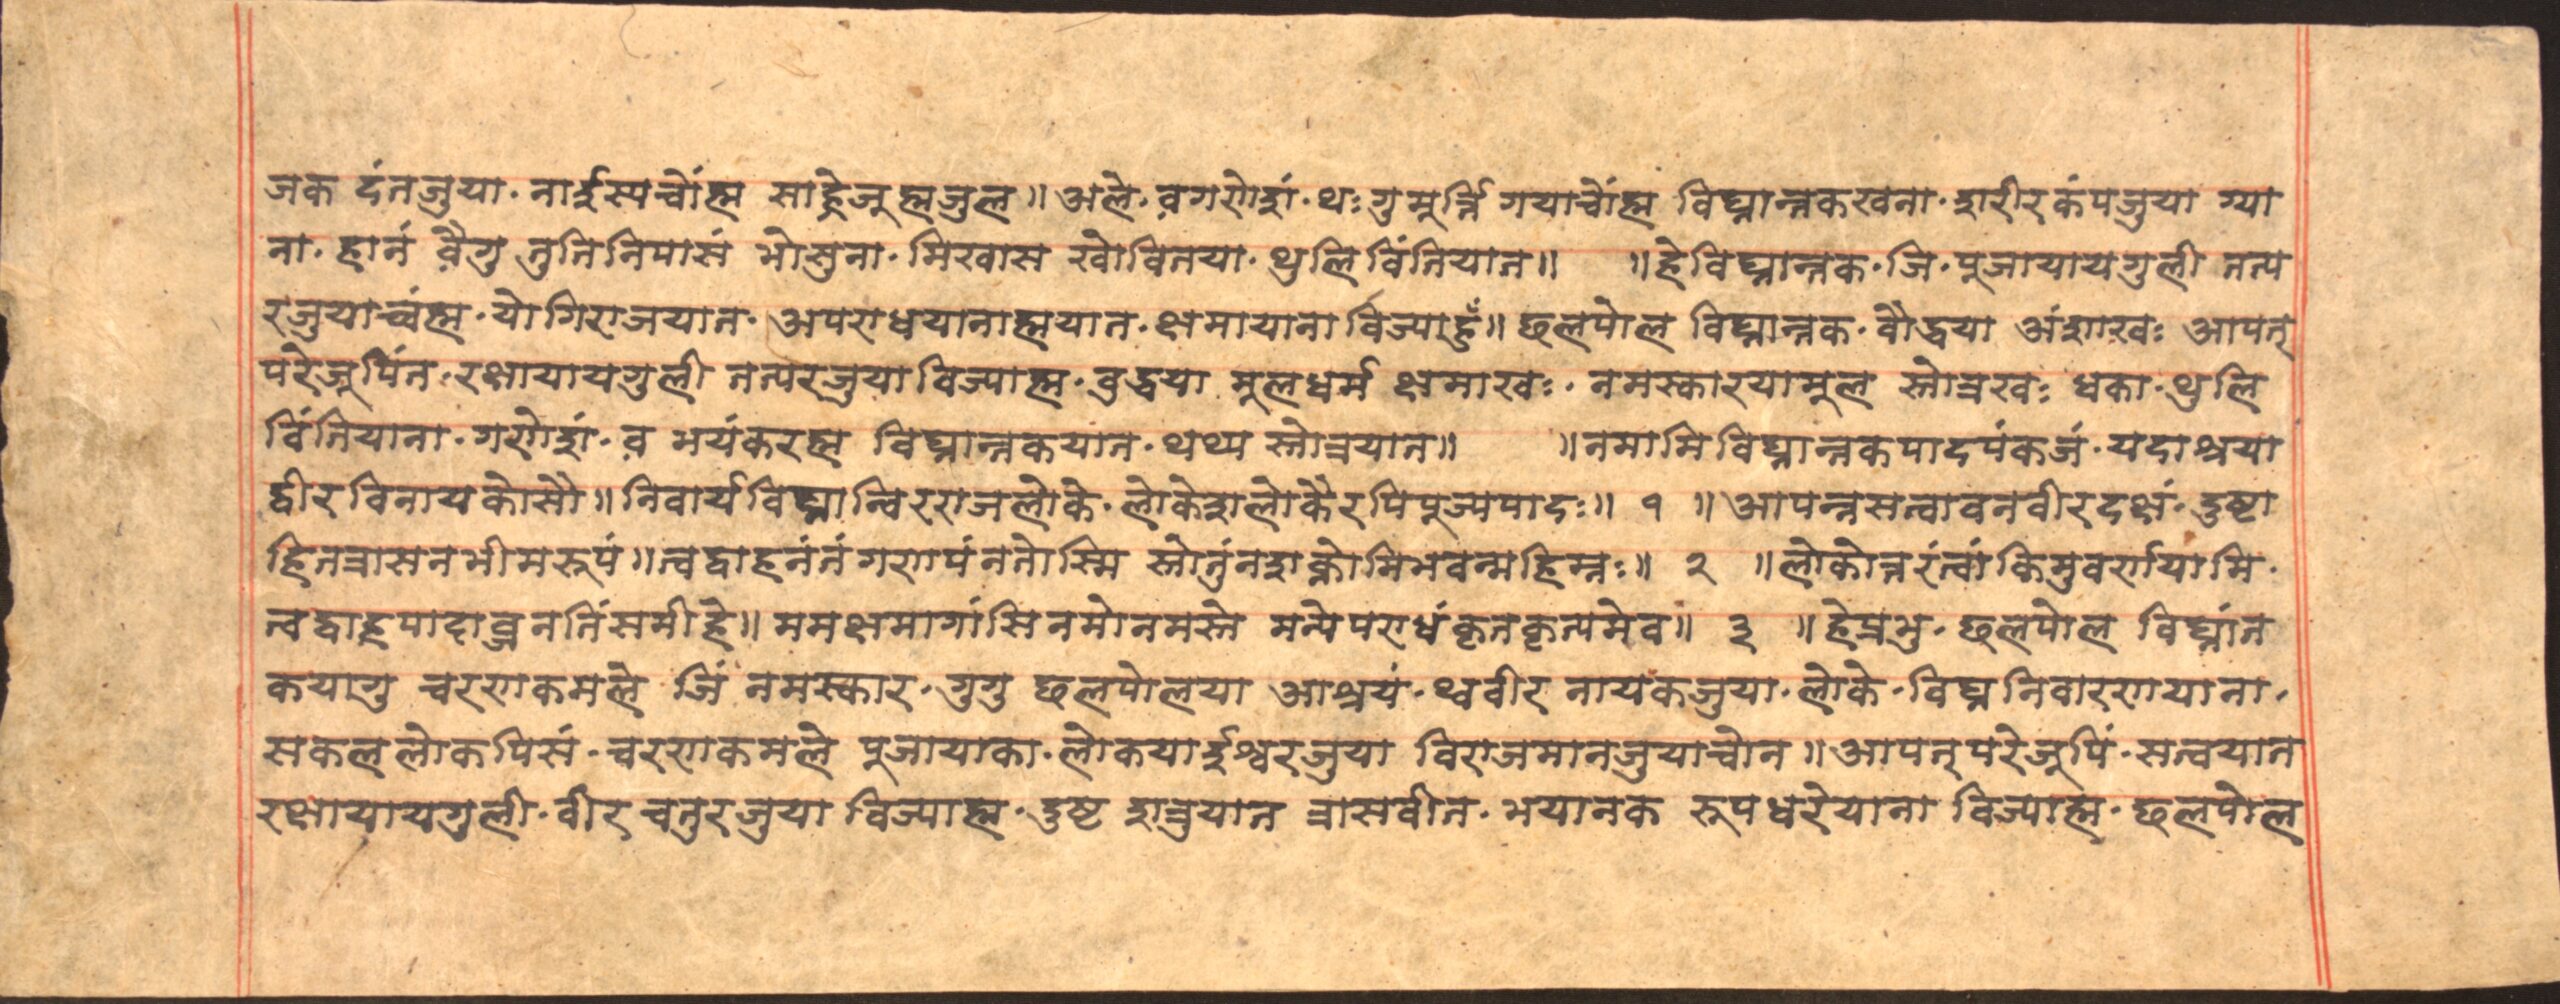 जक दंनजुया · नाईस्यचोंह्म साह्रेजुह्मजुल॥ अले · व़गणेशं · थःगुमूर्त्ति गयाचोंह्म विघ्नान्तकखना · शरीरकंपजुया ग्या
ना · हानं व़ैगु तुतिनिपासं भोसुना · मिखास खोवितया · थुलि विंतियात॥ ॥हेविघ्नान्तक · जि · पूजायायगुली तत्प
रजुयाच्वंह्म · योगिराजयात · अपराधयानाह्मयात · क्षमायाना विज्याहुँ॥ छलपोल विघ्नान्तक · बौद्धया अंशखः आपत्
परेजूपिंत · रक्षायायगुली तत्परजुयाविज्याह्म · बुद्धया मूलधर्म क्षमाखः · नमस्कारयामूल स्तोत्रखः धका · थुलि
विंतियाना · गणेशं · व़ भयंकरह्म विघ्नान्तकयात · थथ्य स्तोत्रयात॥ ॥नमामिविघ्नान्तकपादपंकजं · यदाश्रया
द्वीरविनायकोसौ॥ निवार्यविघ्नान्विरराजलोके · लोकेशलोकैरपिपूज्यपादः॥ १ ॥आपन्नसत्वावनवीरदक्षं · दुष्टा
हितत्रासनभीमरूपं॥ त्वद्वाहनंतंगणपंनतोस्मि स्तोतुंनशक्नोमिभवन्महिम्नः॥ २ ॥लोकोत्तरंत्वांकिमुवर्णयामि ·
त्वद्वाहुपादाब्जनतिंसमीहे॥ ममक्षमागांसिनमोनमस्ते मन्येपराधंकृतकृत्यमेव॥ ३ ॥हेप्रभु · छलपोल विघ्नांत
कयागु चरणकमले जिं नमस्कार · गुगु छलपोलया आश्रयं · थ्ववीर नायकजुया · लोके · विघ्ननिवारणयाना ·
सकललोकपिसं · चरणकमले पूजायाका · लोकयाईश्वरजुया विराजमानजुयाचोन॥ आपत्परेजूपिं · सत्वयात
रक्षायायगुली · वीर चतुरजुया विज्याह्म · दुष्ट शत्रुयात त्रासवीत · भयानक रूपधरेयाना विज्याह्म · छलपोल